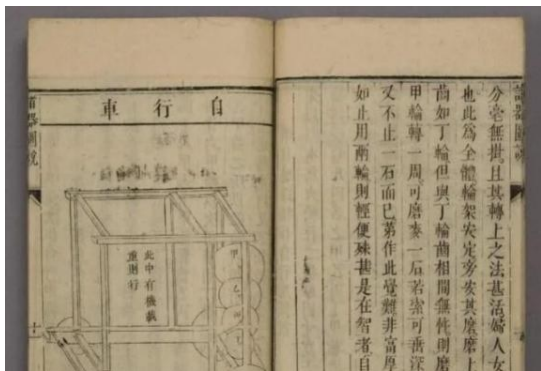 分毫無批且其轉上之法甚活婦人女
也此為全體輪架安定旁安其磨磨上
齒如丁輪但與丁輪齒相間無忤則磨
甲輪轉一周可磨麥一石若索可垂深
又不止一石而已第作此覺難非富厚
如止用兩輪則輕便殊甚是在智者自
諸器圖說
自行車
諸器圖說
此中有機載
重則行
甲
乙
丁
十